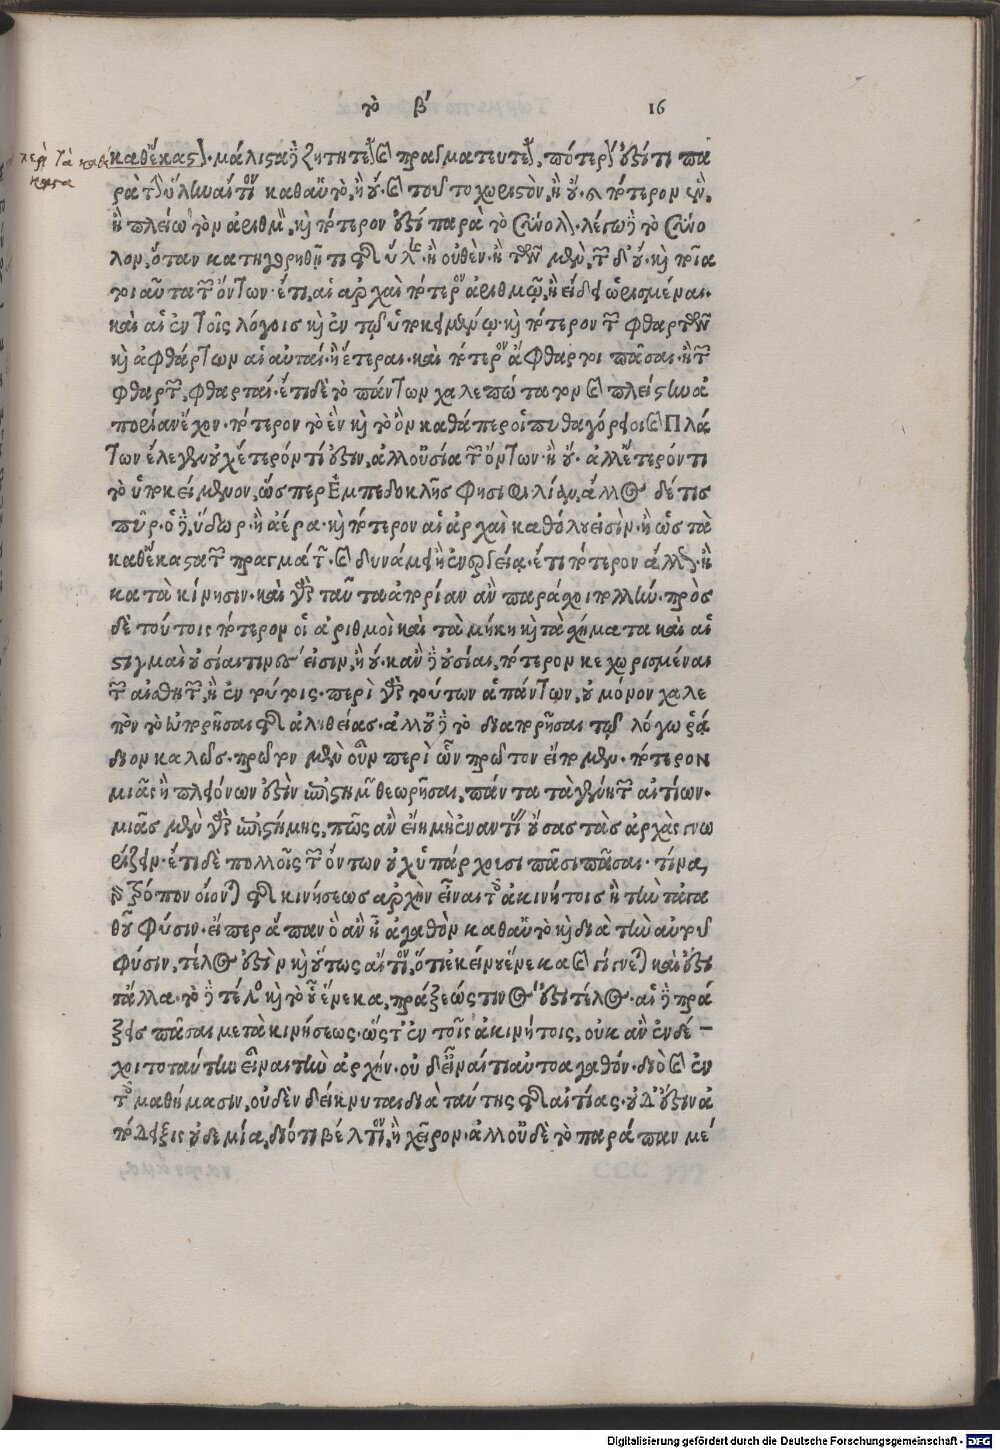 τὸ β′ 16
περὶ τὰ καθέ
καστα
καθ' ἕκαστον. μάλιστα δὲ ζητητέον καὶ πραγματευτέον, πότερόν ἐστί τι πα
ρὰ τὴν ὕλην αἴτιον καθ' αὑτὸ, ἢ οὔ. καὶ τοῦτο χωριστὸν, ἢ οὔ. καὶ πότερον ἓν,
ἢ πλείω τὸν ἀριθμόν. καὶ πότερον ἔστι παρὰ τὸ σύνολον. λέγω δὲ τὸ σύνο
λον, ὅταν κατηγορηθῇ τι τῆς ὕλης. ἢ οὐθὲν. ἢ τῶν μὲν, τῶν δ' οὔ. καὶ ποῖα
τοιαῦτα τῶν ὄντων. ἔτι, αἱ ἀρχαὶ πότερον ἀριθμῷ, ἢ εἴδει ὡρισμέναι.
καὶ αἱ ἐν τοῖς λόγοις καὶ ἐν τῷ ὑποκειμένῳ. καὶ πότερον τῶν φθαρτῶν
καὶ ἀφθάρτων αἱ αὐταί. ἢ ἕτεραι. καὶ πότερον ἄφθαρτοι πᾶσαι. ἢ τῶν
φθαρτῶν, φθαρταί. ἔτι δὲ τὸ πάντων χαλεπώτατον καὶ πλείστην ἀ
πορίαν ἔχον. πότερον τὸ ἓν καὶ τὸ ὂν καθάπερ οἱ πυθαγόρειοι καὶ Πλά
των ἔλεγεν οὐχ ἕτερόν τί ἐστιν, ἀλλ' οὐσία τῶν ὄντων. ἢ οὔ. ἀλλ' ἕτερόν τι
τὸ ὑποκείμενον, ὥσπερ Ἐμπεδοκλῆς φησι φιλίαν, ἄλλος δέ τις
πῦρ. ὁ δὲ, ὕδωρ. ἢ ἀέρα. καὶ πότερον αἱ ἀρχαὶ καθόλου εἰσὶν. ἢ ὡς τὰ
καθ' ἕκαστα τῶν πραγμάτων. καὶ δυνάμει ἢ ἐνεργείᾳ. ἔτι πότερον ἄλλως. ἢ
κατὰ κίνησιν. καὶ γὰρ ταῦτα ἀπορίαν ἂν παράσχοι πολλήν. πρὸς
δὲ τούτοις πότερον οἱ ἀριθμοὶ καὶ τὰ μήκη καὶ τὰ σχήματα καὶ αἱ
στιγμαὶ οὐσίαι τινές εἰσιν, ἢ οὔ. κἂν δὲ οὐσίαι, πότερον κεχωρισμέναι
τῶν αἰσθητῶν, ἢ ἐν τούτοις. περὶ γὰρ τούτων ἁπάντων, οὐ μόνον χαλε
πὸν τὸ εὐπορῆσαι τῆς ἀληθείας. ἀλλ' οὐδὲ τὸ διαπορῆσαι τῷ λόγῳ ῥᾴ
διον καλῶς. πρῶτον μὲν οὖν περὶ ὧν πρῶτον εἴπομεν. πότερον
μιᾶς ἢ πλειόνων ἐστὶν ἐπιστημῶν θεωρῆσαι, πάντα τὰ γένη τῶν αἰτίων.
μιᾶς μὲν γὰρ ἐπιστήμης, πῶς ἂν εἴη μὴ ἐναντίας οὔσας τὰς ἀρχὰς γνω
ρίζειν. ἔτι δὲ πολλοῖς τῶν ὄντων οὐχ ὑπάρχουσι πᾶσι πᾶσαι. τίνα
γὰρ τρόπον οἷόν τε τῆς κινήσεως ἀρχὴν εἶναι τοῖς ἀκινήτοις ἢ τὴν τἀγα
θοῦ φύσιν. εἴπερ ἅπαν ὃ ἂν ᾖ ἀγαθὸν καθ' αὑτὸ καὶ διὰ τὴν αὑτοῦ
φύσιν, τέλος ἐστὶν καὶ οὕτως αἴτιον, ὅτι ἐκείνου ἕνεκα καὶ γίγνεται καὶ ἔστι
τἆλλα. τὸ δὲ τέλος καὶ τὸ οὗ ἕνεκα, πράξεώς τινος ἐστὶ τέλος. αἱ δὲ πρά
ξεις πᾶσαι μετὰ κινήσεως. ὥστ' ἐν τοῖς ἀκινήτοις, οὐκ ἂν ἐνδέ–
χοιτο ταύτην εἶναι τὴν ἀρχήν. οὐδ' εἶναί τι αὐτοαγαθόν. διὸ καὶ ἐν
τοῖς μαθήμασιν, οὐδὲν δείκνυται διὰ ταύτης τῆς αἰτίας. οὐδ' ἔστιν ἀ
πόδειξις οὐδεμία, διότι βέλτιον, ἢ χεῖρον. ἀλλ' οὐδὲ τὸ παράπαν μέ
Digitalisierung gefördert durch die Deutsche Forschungsgemeinschaft - DFG